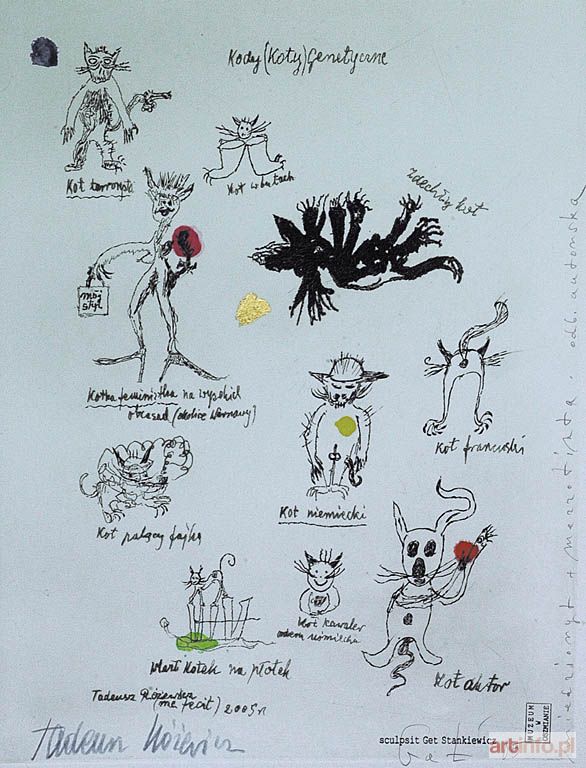 Kody (Koty) Genetyczne
Kot terrorysta
Kot w butach
zdechły kot
mój
styl
Kotka feministka na wysokich
obcasach (okolice Warszawy)
Kot francuski
Kot niemiecki
Kot palący fajkę
Kot kawaler
orderu uśmiechu
Wlazł Kotek na płotek
Kot aktor
Tadeusz Różewicz
me fecit) 2005 r
Tadeusz Różewicz
sculpsit Get Stankiewicz
MUZEUM
W
OZIMIANIE
artinfo.pl
miedzioryt + mezzotinta. odb. autorska